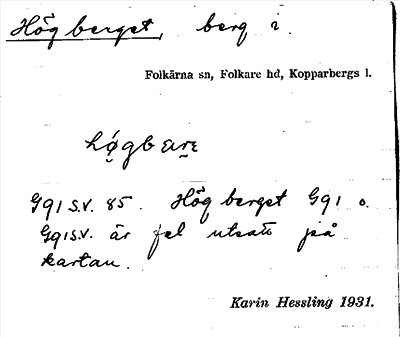 Högberget, berg i.
Folkärna sn, Folkare hd, Kopparbergs l.
Gg1 S.V. 85. Högberget Gg1 o.
Gg1 S.V. är fel utsatt på
kartan.
Karin Hessling 1931.